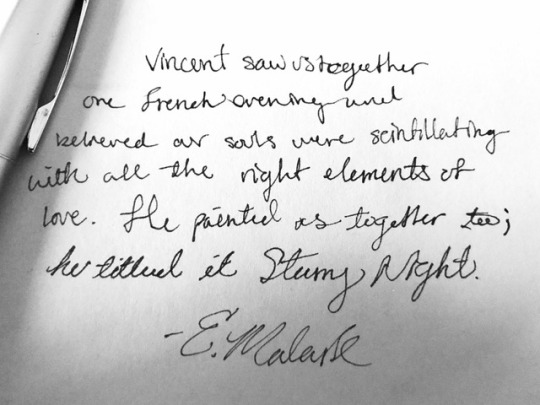 Vincent saw us together
one French evening and
believed our souls were scintillating
with all the right elements of
love. He painted us together too;
he titled it Starry Night.
-E. Malarke